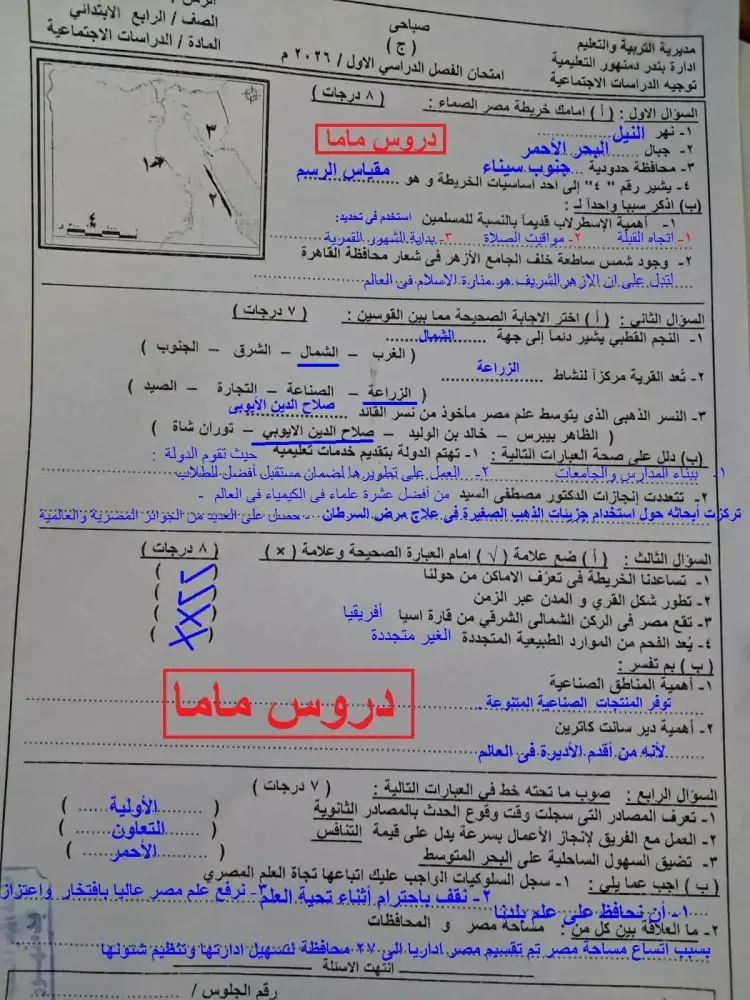 مديرية التربية والتعليم
ادارة بندر دمنهور التعليمية
توجيه الدراسات الاجتماعية
صباحى
( ج )
امتحان الفصل الدراسي الاول / ٢٠٢٦ م
الصف / الرابع الابتدائي
المادة / الدراسات الاجتماعية
السؤال الاول : ( أ ) امامك خريطة مصر الصماء : ( ٨ درجات )
١- نهر النيل
٢- جبال البحر الأحمر
٣- محافظة حدودية جنوب سيناء
٤- يشير رقم " ٤" إلى احد اساسيات الخريطة و هو مقياس الرسم
دروس ماما
١
٢
٣
٤
(ب) اذكر سببا واحداً لـ :
١- أهمية الإسطرلاب قديماً بالنسبة للمسلمين استخدم فى تحديد:
١- اتجاه القبلة ٢- مواقيت الصلاة ٣- بداية الشهور القمرية
٢- وجود شمس ساطعة خلف الجامع الأزهر فى شعار محافظة القاهرة
لتدل على ان الازهر الشريف هو منارة الاسلام فى العالم
السؤال الثاني : ( أ ) اختر الاجابة الصحيحة مما بين القوسين : ( ٧ درجات )
١- النجم القطبي يشير دائماً إلى جهة الشمال
( الغرب – الشمال – الشرق – الجنوب )
٢- تُعد القرية مركزاً لنشاط الزراعة
( الزراعة – الصناعة – التجارة – الصيد )
٣- النسر الذهبى الذى يتوسط علم مصر مأخوذ من نسر القائد صلاح الدين الأيوبى
( الظاهر بيبرس – خالد بن الوليد – صلاح الدين الايوبي – توران شاة )
(ب) دلل على صحة العبارات التالية : ١- تهتم الدولة بتقديم خدمات تعليميه حيث تقوم الدولة :
١- ببناء المدارس والجامعات ٢- العمل على تطويرها لضمان مستقبل أفضل للطلاب
٢- تتعددت إنجازات الدكتور مصطفى السيد من أفضل عشرة علماء فى الكيمياء فى العالم -
تركزت أبحاثه حول استخدام جزيئات الذهب الصغيرة فى علاج مرض السرطان - حصل على العديد من الجوائز المصرية والعالمية
السؤال الثالث : ( أ ) ضع علامة ( √ ) امام العبارة الصحيحة وعلامة ( × ) ( ٨ درجات )
١- تساعدنا الخريطة فى تعرف الاماكن من حولنا ( ✓ )
٢- تطور شكل القري و المدن عبر الزمن ( ✓ )
٣- تقع مصر فى الركن الشمالى الشرقي من قارة اسيا أفريقيا ( X )
٤- يُعد الفحم من الموارد الطبيعية المتجددة الغير متجددة ( X )
( ب ) بم تفسر :
١- أهمية المناطق الصناعية
توفر المنتجات الصناعية المتنوعة
دروس ماما
٢- أهمية دير سانت كاترين
لأنه من أقدم الأديرة فى العالم
السؤال الرابع : صوب ما تحته خط في العبارات التالية : ( ٧ درجات )
١- تعرف المصادر التى سجلت وقت وقوع الحدث بالمصادر الثانوية ( الأولية )
٢- العمل مع الفريق لإنجاز الأعمال بسرعة يدل على قيمة التنافس ( التعاون )
٣- تضيق السهول الساحلية على البحر المتوسط ( الأحمر )
( ب ) اجب عما يلي : ١- سجل السلوكيات الواجب عليك اتباعها تجاة العلم المصري
١- أن نحافظ على علم بلدنا ٢- نقف باحترام أثناء تحية العلم ٣- نرفع علم مصر عاليا بافتخار واعتزاز
٢- ما العلاقة بين كل من : مساحة مصر و المحافظات
بسبب اتساع مساحة مصر تم تقسيم مصر اداريا الى ٢٧ محافظة لتسهيل ادارتها وتنظيم شئونها
انتهت الاسئلة
رقم الجلوس /